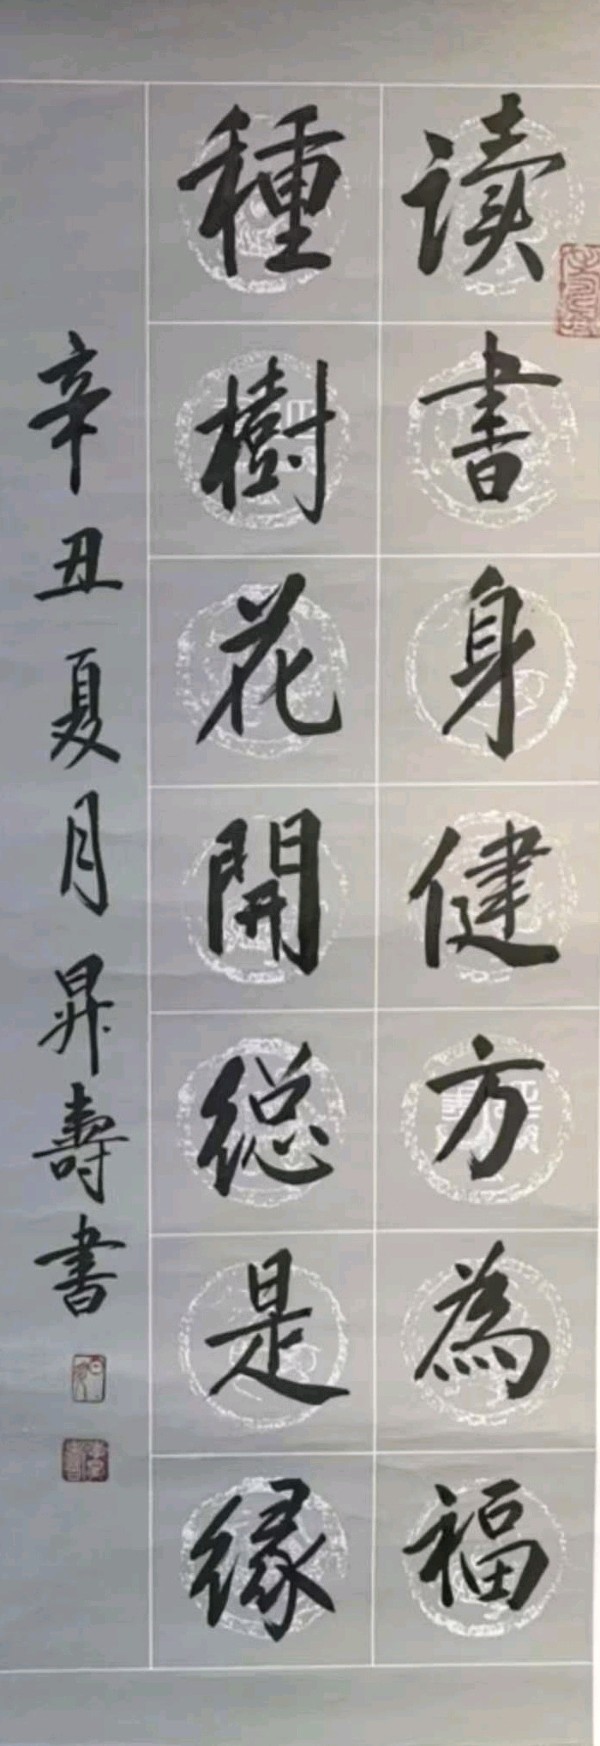 读書身健方為福
種樹花開総是縁
辛丑夏月昇壽書